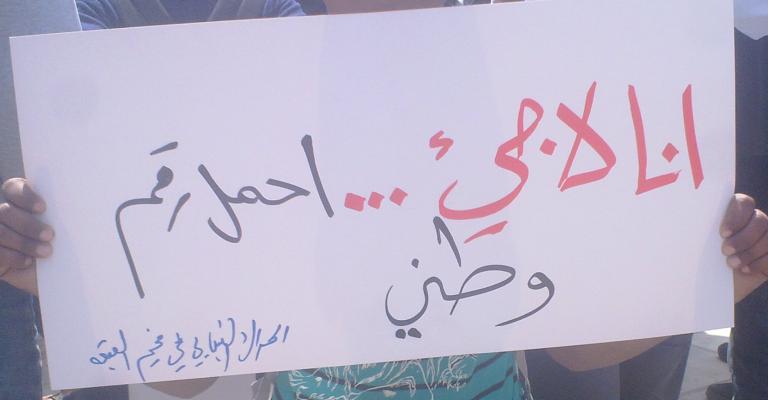 انا لاجئ ... احمل رقم
وطني
الحراك الشبابي في مخيم البقعه